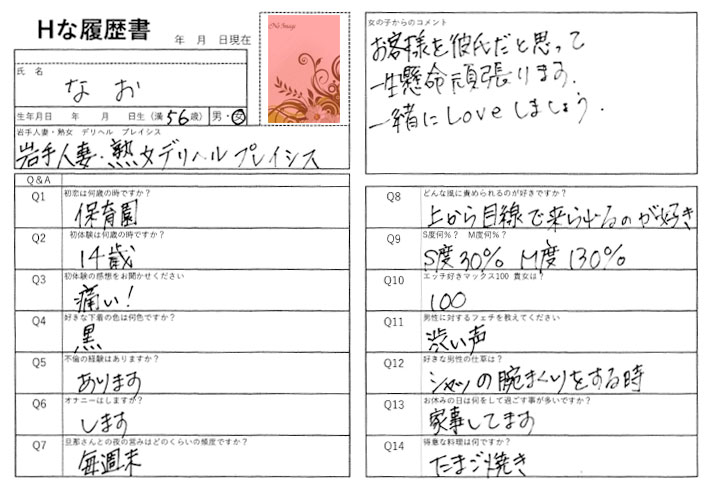 Hな履歴書
年 月 日現在
No Image
氏 名
なお
生年月日 年 月 日生（満 56 歳） 男・女
岩手人妻・熟女 デリヘル プレイシス
岩手人妻・熟女デリヘル プレイシス
女の子からのコメント
お客様を彼氏だと思って
一生懸命頑張ります.
一緒にLoveしましょう.
Q&A
Q1 初恋は何歳の時ですか？
保育園
Q4 好きな下着の色は何色ですか？
黒
Q5 不倫の経験はありますか？
あります
Q6 オナニーはしますか？
します
Q7 旦那さんとの夜の営みはどのくらいの頻度ですか？
毎週末
Q8 どんな風に責められるのが好きですか？
上から目線で来られるのが好き
Q9 S度何%？ M度何%？
S度30% M度130%
Q10 エッチ好きマックス100 貴女は？
100
Q11 男性に対するフェチを教えてください
渋い声
Q12 好きな男性の仕草は？
シャツの腕まくりをする時
Q13 お休みの日は何をして過ごす事が多いですか？
家事してます
Q14 得意な料理は何ですか？
たまご焼き